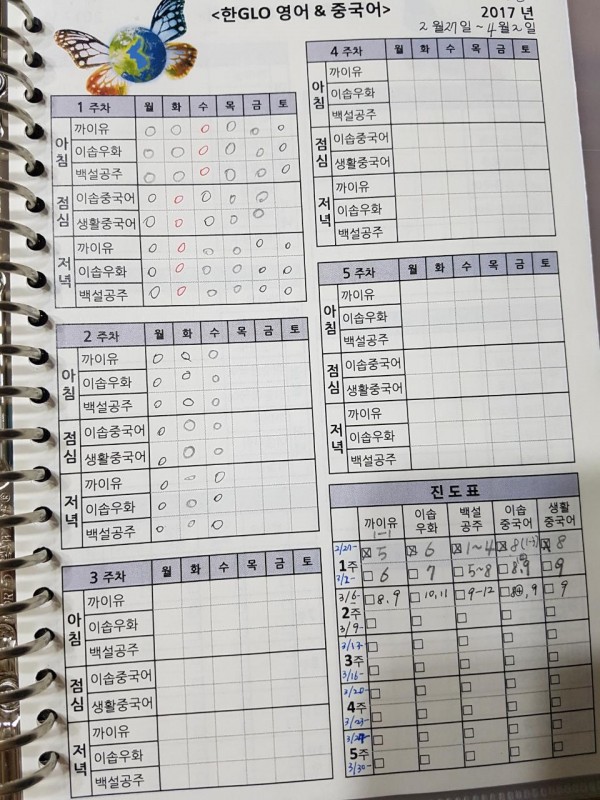 <한GLO 영어 & 중국어>
2017 년
2월27일 ~ 4월2일
1 주차 월 화 수 목 금 토
아침
까이유 O O O O O O
이솝우화 O O O O O O
백설공주 O O O O O O
점심
이솝중국어 O O O O O
생활중국어 O O O O O
저녁
까이유 O O O O O O
이솝우화 O O O O O O
백설공주 O O O O O O
2 주차 월 화 수 목 금 토
아침
까이유 O O O
이솝우화 O O O
백설공주 O O O
점심
이솝중국어 O O O
생활중국어 O O O
저녁
까이유 O O O
이솝우화 O O O
백설공주 O O O
3 주차 월 화 수 목 금 토
아침
까이유
이솝우화
백설공주
점심
이솝중국어
생활중국어
저녁
까이유
이솝우화
백설공주
4 주차 월 화 수 목 금 토
아침
까이유
이솝우화
백설공주
점심
이솝중국어
생활중국어
저녁
까이유
이솝우화
백설공주
5 주차 월 화 수 목 금 토
아침
까이유
이솝우화
백설공주
점심
이솝중국어
생활중국어
저녁
까이유
이솝우화
백설공주
진 도 표
까이유 이솝우화 백설공주 이솝중국어 생활중국어
1-1
2/27- 5 6 1~4 8 8
1주
3/2- 6 7 5~8 8.9 9
3/6- 8.9 10,11 9-12 9 9
2주
3/9-
3/13-
3주
3/16-
3/20-
4주
3/23-
3/27-
5주
3/30-